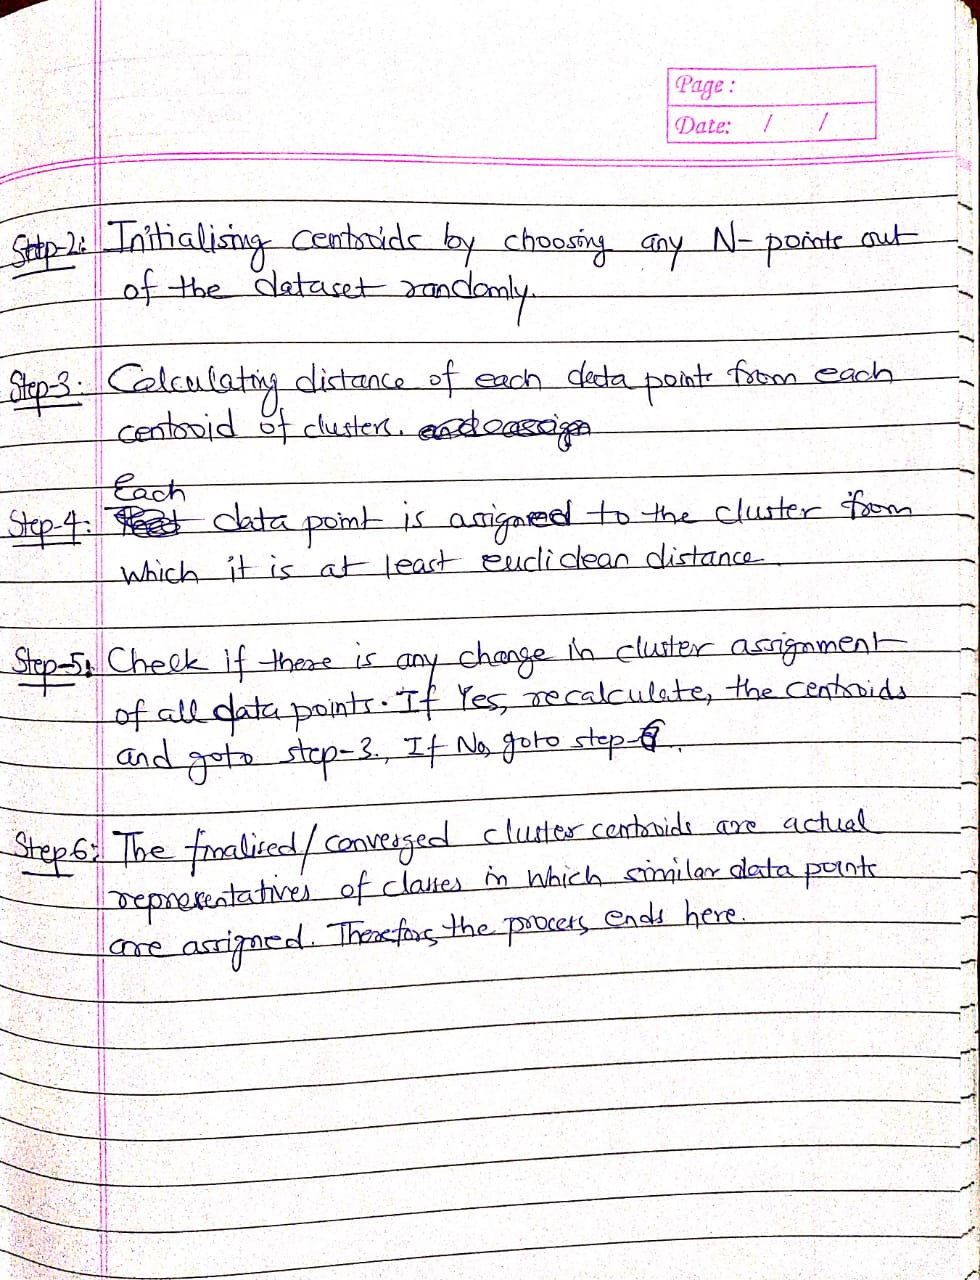 Page :
Date: / /
Step-2: Initialising centroids by choosing any N- points out
of the dataset randomly.
Step-3: Calculating distance of each data points from each
centroid of clusters.
Each
Step-4: data point is assigned to the cluster from
which it is at least euclidean distance.
Step-5: Check if there is any change in cluster assignment
of all data points. If Yes, recalculate, the centroids
and goto step-3., If No, goto step-6.
Step 6: The finalised/converged cluster centroids are actual
representatives of classes in which similar data points
are assigned. Therefore, the process ends here.